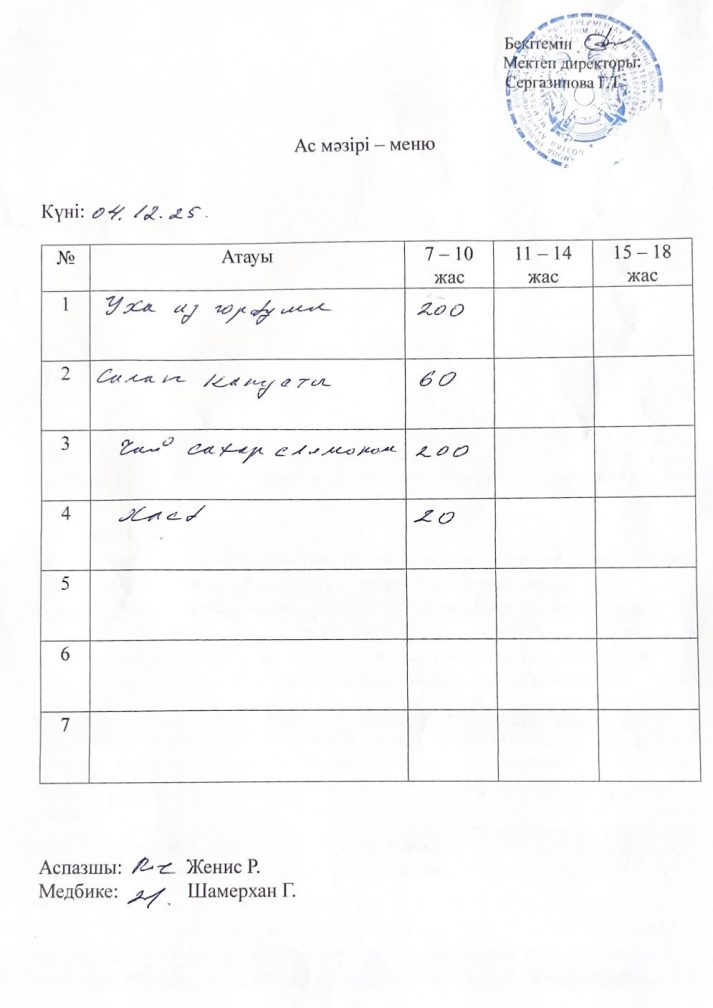 Бекітемін
Мектеп директоры:
Сергазинова Г.Т.
Ас мәзірі – меню
Күні: 04.12.25.
№ Атауы 7 – 10 жас 11 – 14 жас 15 – 18 жас
1 Уха из горбуши 200
2 Салат капусты 60
3 Чай сахар с лимоном 200
4 Хлеб 20
5
6
7
Аспазшы: Женис Р.
Медбике: Шамерхан Г.